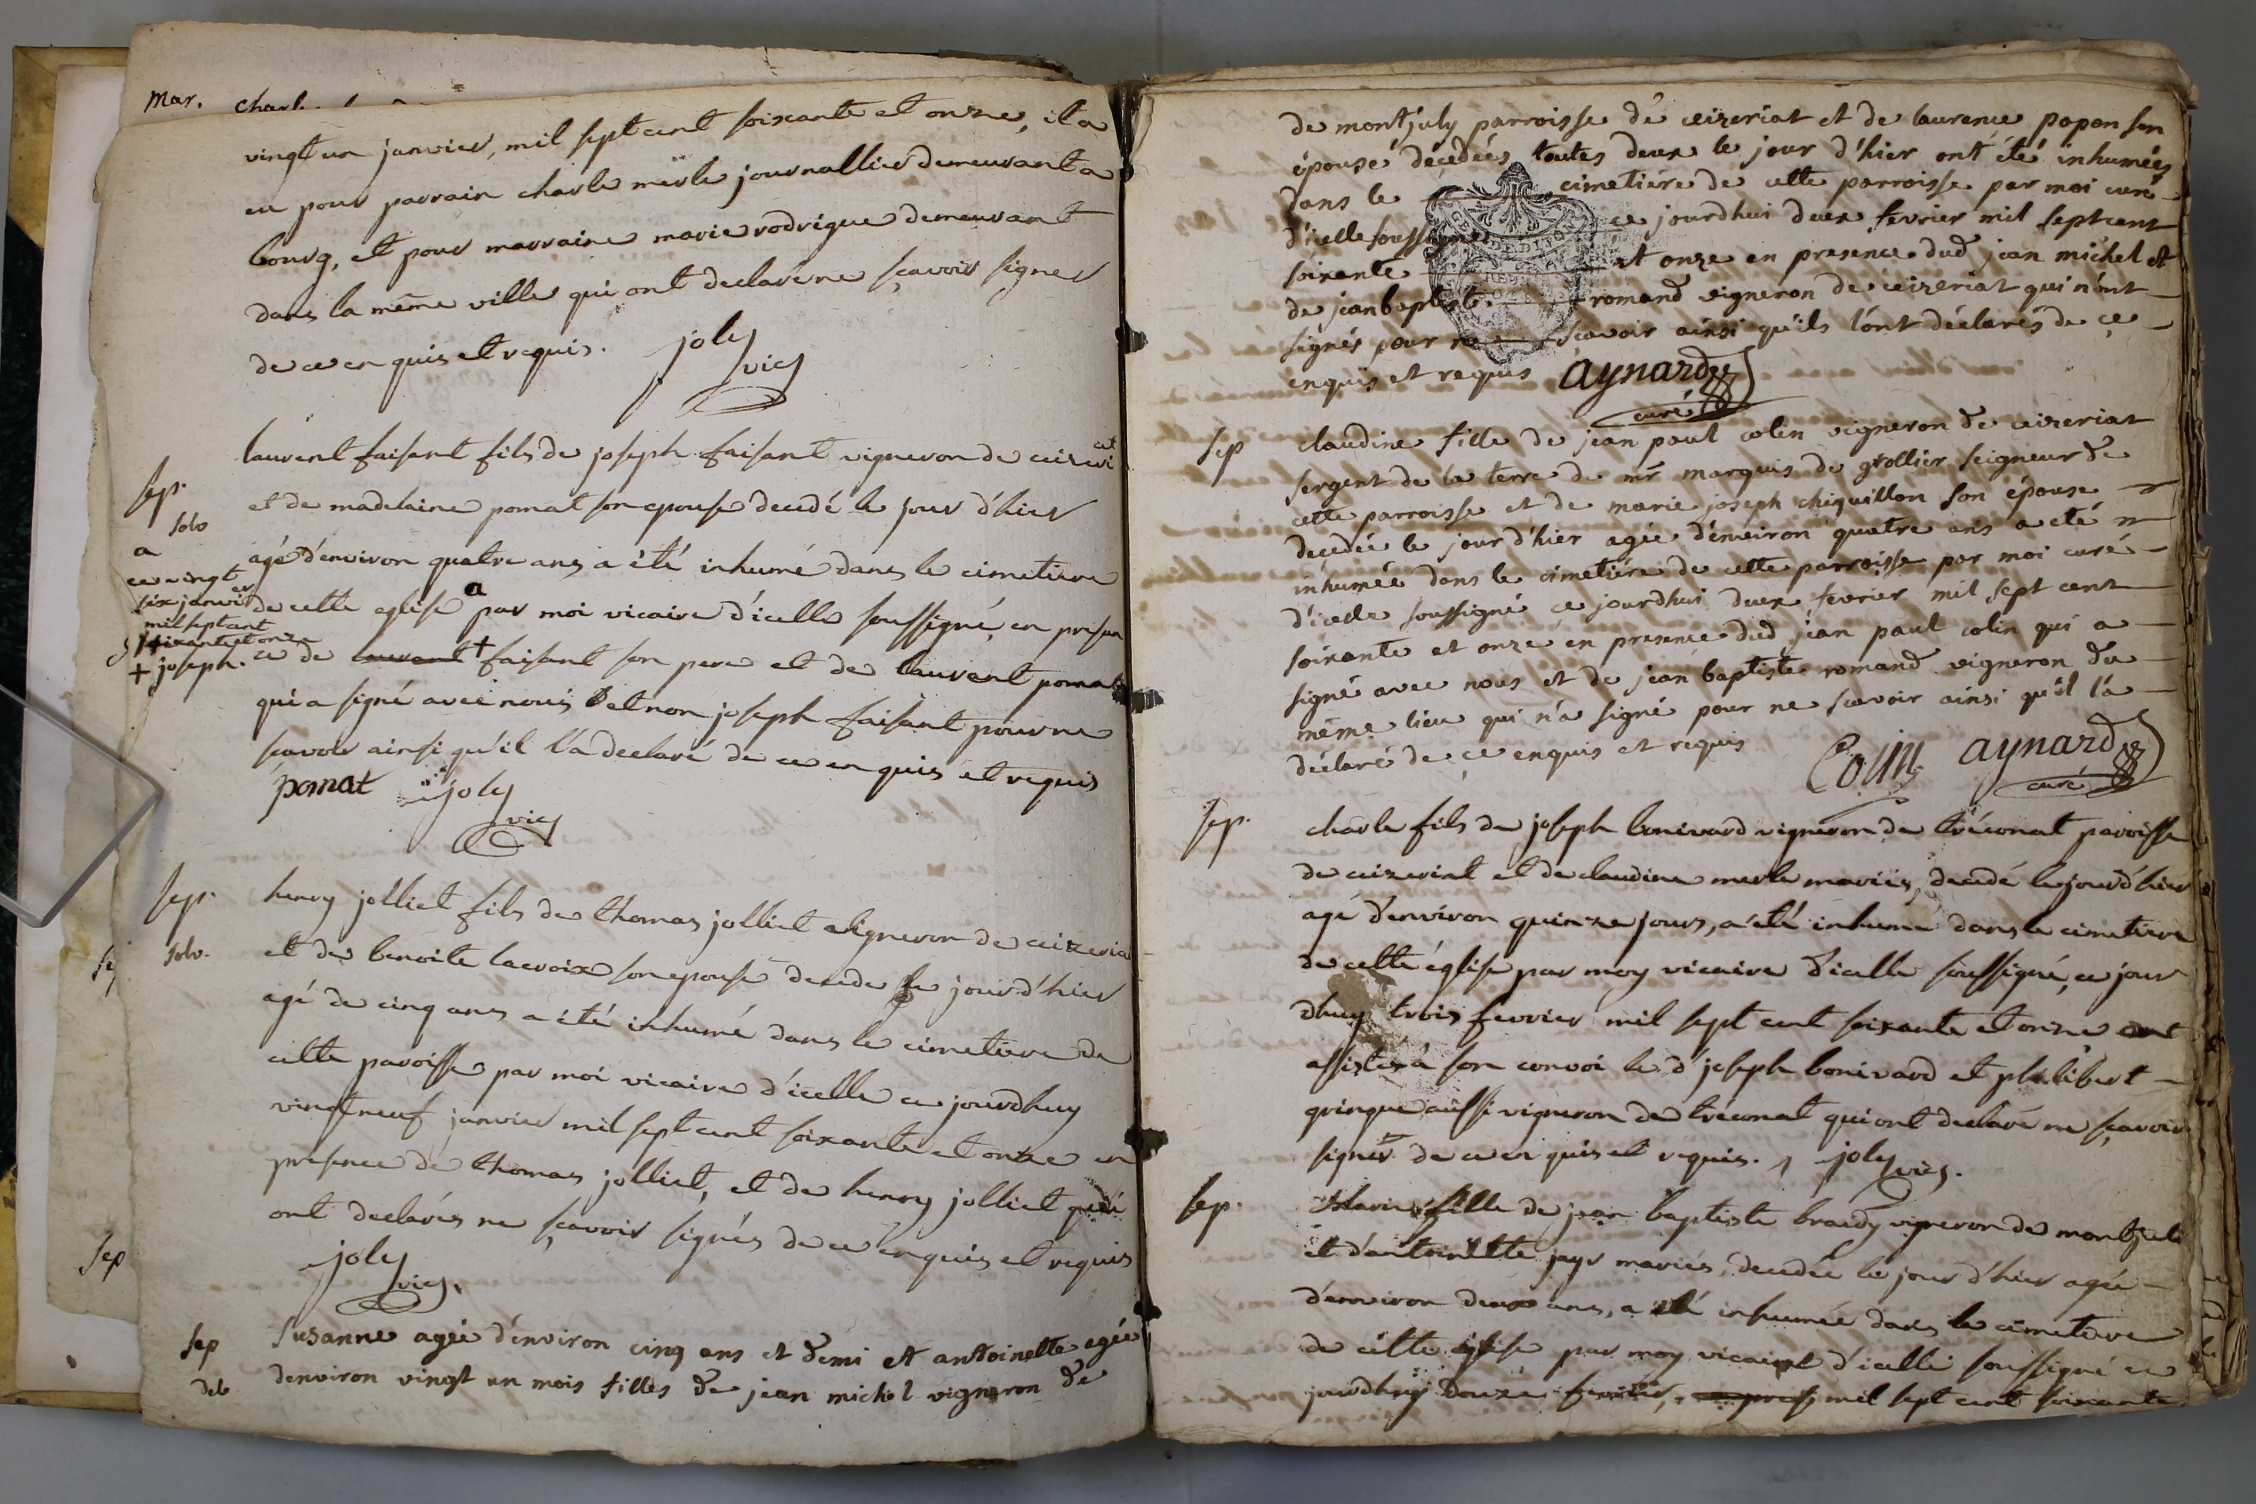 Mar. charle
vingt un janvier, mil sept cent soixante et onze, il a
eu pour parrain charle merle journallier demeurant a
bourg, et pour marraine marie rodrigue demeurant
dans la même ville qui ont declaré ne sçavoir signer
de ce enquis et requis. joly
vic
laurent faisant fils de joseph faisant vigneron de ceizeriat
sep.
et de madelaine pomat son epouse decedé le jour d'hier
solv
agé d'environ quatre ans a été inhumé dans le cimetiere
a
ce vingt
six janvier
mil sept cent
soixante et onze
de cette eglise a par moi vicaire d'icelle soussigné, en presen
+ joseph. ce de laurent + faisant son pere et de laurent pomat
qui a signé avec nous et non joseph faisant pour ne
scavoir ainsi qu'il l'a declaré de ce enquis et requis
pomat joly
vic
sep. henry jolliet fils de thomas jolliet vigneron de ceizeria
solv. et de benoite lacroix son epouse decede le jour d'hier
agé de cinq ans a été inhumé dans le cimetiere de
cette paroisse par moi vicaire d'icelle ce jourdhuy
vingt neuf janvier mil sept cent soixante et onze en
presence de thomas jolliet, et de henry jolliet qui
ont declarés ne sçavoir signés de ce enquis et requis
joly
vic.
sep Susanne agée d'environ cinq ans et demi et antoinette agée
deb denviron vingt un mois filles de jean michel vigneron de
sep
de montjuly parroisse de ceizeriat et de laurence papon son
épouse décedées toutes deux le jour d'hier ont été inhumées
dans le cimetiére de cette parroisse par moi curé
d'icelle soussigné ce jourdhui deux fevrier mil sept cent
soixante et onze en presence dud jean michel et
de jean baptiste romand vigneron de ceizeriat qui n'ont
signés pour ne sçavoir ainsi qu'ils l'ont déclarés de ce
enquis et requis aynard
curé
sep claudine fille de jean paul colin vigneron de ceizeriat
sergent de la terre de mr marquis de grollier seigneur de
cette parroisse et de marie joseph chiquillon son épouse
decedée le jour d'hier agée d'environ quatre ans a eté
inhumée dans le cimetiére de cette parroisse par moi curé
d'icelle soussigné ce jourdhui deux fevrier mil sept cent
soixante et onze en presence dud jean paul colin qui a
signé avec nous et de jean baptiste romand vigneron du
même lieu qui n'a signé pour ne scavoir ainsi qu'il l'a
déclaré de ce enquis et requis Colin aynard
curé
sep. charle fils de joseph bonivard vigneron de tréconat paroisse
de ceizeriat et de claudine merle mariés, decedé le jour d'hier
agé d'environ quinze jours, a été inhumé dans le cimetiere
de cette église par moy vicaire d'icelle soussigné, ce jour
dhuy trois fevrier mil sept cent soixante et onze ont
assistés à son convoi le d joseph bonivard et philibert
gringue aussi vigneron de tréconat qui ont declaré ne sçavoir
signer de ce enquis et requis. joly vic.
sep. Marie fille de jean baptiste vigneron de montjuli
et d'antoinette mariés, decedée le jour d'hier agée
d'environ deux ans, a été inhumée dans le cimetiere
de cette eglise par moy vicaire d'icelle soussigné ce
jourdhuy douze fevrier, mil sept cent soixante